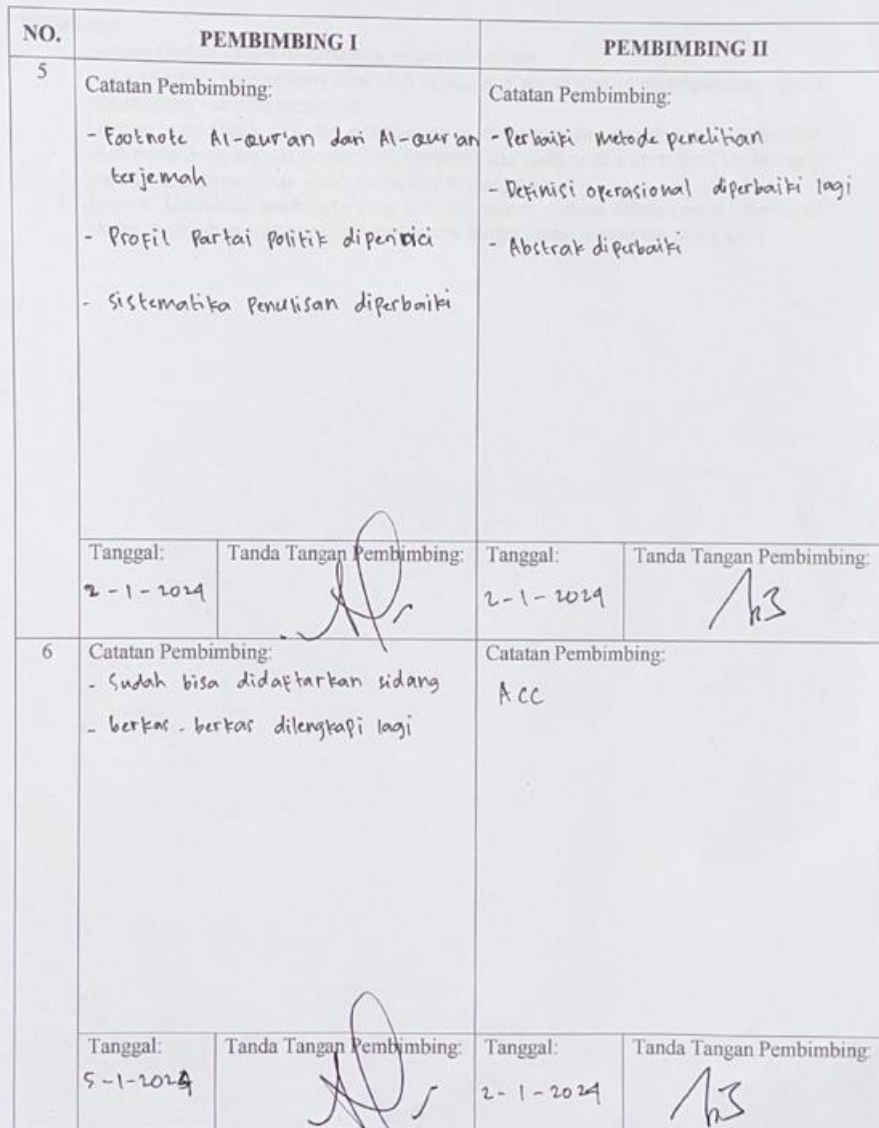 NO.
PEMBIMBING I
PEMBIMBING II
5
Catatan Pembimbing:
- Footnote Al-Qur'an dari Al-Qur'an
terjemah
- Profil Partai Politik diperinci
- Sistematika Penulisan diperbaiki
Catatan Pembimbing:
- Perbaiki metode penelitian
- Definisi operasional diperbaiki lagi
- Abstrak diperbaiki
Tanggal:
2-1-2024
Tanda Tangan Pembimbing:
Tanggal:
2-1-2024
Tanda Tangan Pembimbing:
6
Catatan Pembimbing:
- Sudah bisa didaftarkan sidang
- berkas-berkas dilengkapi lagi
Catatan Pembimbing:
ACC
Tanggal:
5-1-2024
Tanda Tangan Pembimbing:
Tanggal:
2-1-2024
Tanda Tangan Pembimbing: